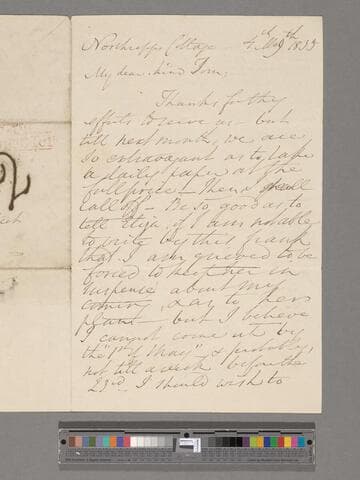 Northrepps Cottage 4th
My dear kind Tom,
Thanks for thy
efforts to serve us but
till next month, we are
so extravagant as to take
a daily paper at the
full price — then I shall
call off — Be so good as to
tell Eliza, if I am not able
to write by this frank
that I am grieved to be
forced to keep her in
suspence about my
coming, & as to her
plans — but I believe
I cannot come it by
the "1st of May" & probably,
not till a week before the
23rd. I should wish to